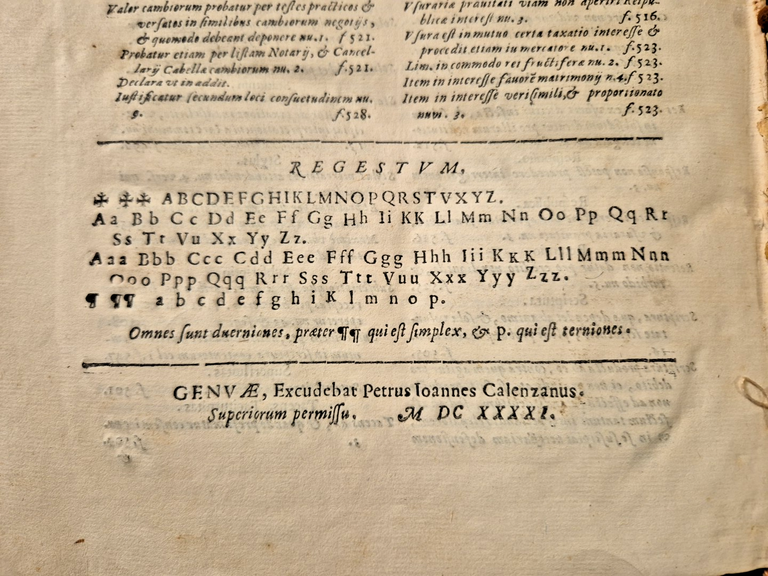 Valor cambiorum probatur per testes practicos &
versatos in similibus cambiorum negotijs,
& quomodo debeant deponere nu.1. f 521.
Probatur etiam per listam Notarij, & Cancel-
larij Cabellæ cambiorum nu. 2. f.521.
Declara vt in addit.
Iustificatur secundum loci consuetudinem nu.
9. f.528.
Vsurariæ prauitati viam non aperiri Reipu-
blicæ interest nu. 3. f.516.
Vsura est in mutuo certa taxatio interesse &
procedit etiam in mercatore nu.1. f.523.
Lim. in commodo rei fructiferæ nu. 2. f.523.
Item in interesse fauore matrimonij n.4.f 523.
Item in interesse verisimili,& proportionato
num. 3. f.523.
REGESTVM.
✠ ✠✠ ABCDEFGHIKLMNOPQRSTVXYZ.
Aa Bb Cc Dd Ee Ff Gg Hh Ii KK Ll Mm Nn Oo Pp Qq Rr
Ss Tt Vu Xx Yy Zz.
Aaa Bbb Ccc Cdd Eee Fff Ggg Hhh Iii KKK Lll Mmm Nnn
Ooo Ppp Qqq Rrr Sss Ttt Vuu Xxx Yyy Zzz.
¶ ¶¶ a b c d e f g h i K l m n o p.
Omnes sunt duerniones, præter ¶¶ qui est simplex, & p. qui est terniones.
GENVÆ, Excudebat Petrus Ioannes Calenzanus.
Superiorum permissu. M DC XXXXI.